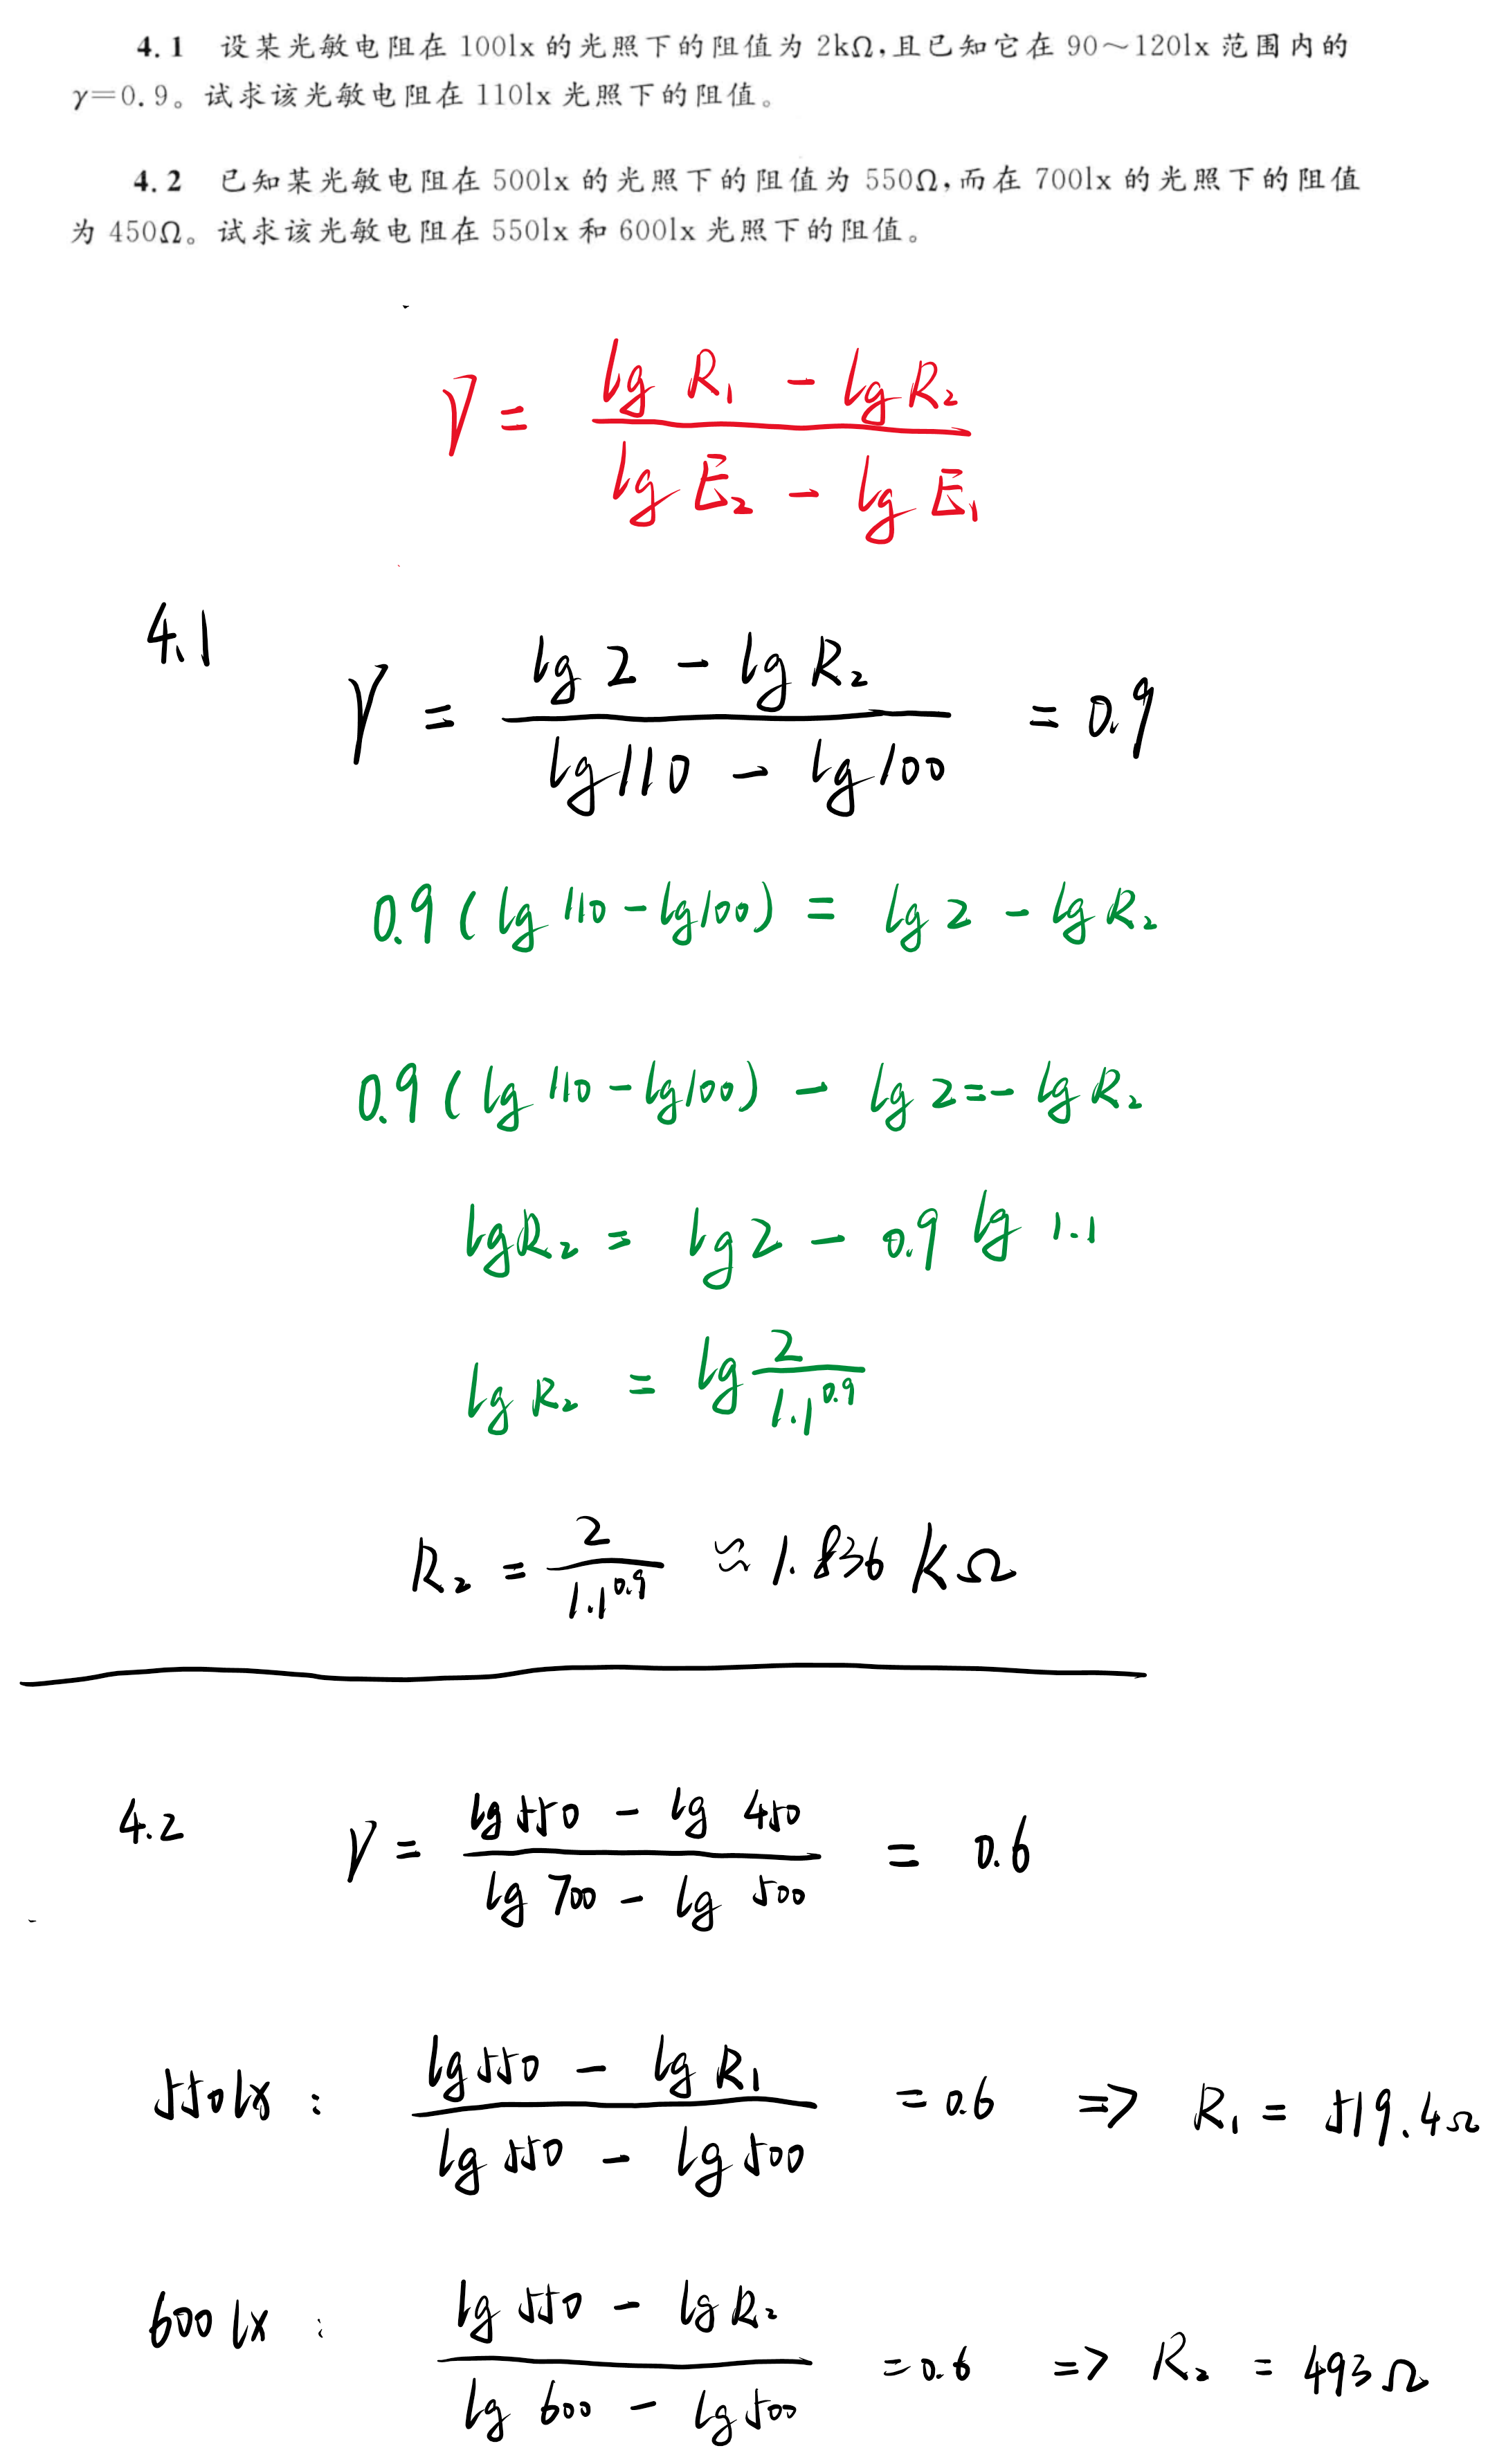 4.1 设某光敏电阻在 100lx 的光照下的阻值为 2kΩ,且已知它在 90～120lx 范围内的
γ=0.9。试求该光敏电阻在 110lx 光照下的阻值。
4.2 已知某光敏电阻在 500lx 的光照下的阻值为 550Ω,而在 700lx 的光照下的阻值
为 450Ω。试求该光敏电阻在 550lx 和 600lx 光照下的阻值。
γ = (lg R₁ - lg R₂) / (lg E₂ - lg E₁)
4.1
γ = (lg 2 - lg R₂) / (lg 110 - lg 100) = 0.9
0.9 ( lg 110 - lg 100 ) = lg 2 - lg R₂
0.9 ( lg 110 - lg 100 ) - lg 2 = - lg R₂
lg R₂ = lg 2 - 0.9 lg 1.1
lg R₂ = lg 2 / 1.1^0.9
R₂ = 2 / 1.1^0.9 ≈ 1.836 kΩ
4.2 γ = (lg 550 - lg 450) / (lg 700 - lg 500) = 0.6
550 lx : (lg 550 - lg R₁) / (lg 550 - lg 500) = 0.6 ⇒ R₁ = 519.4Ω
600 lx : (lg 550 - lg R₂) / (lg 600 - lg 500) = 0.6 ⇒ R₂ = 493Ω